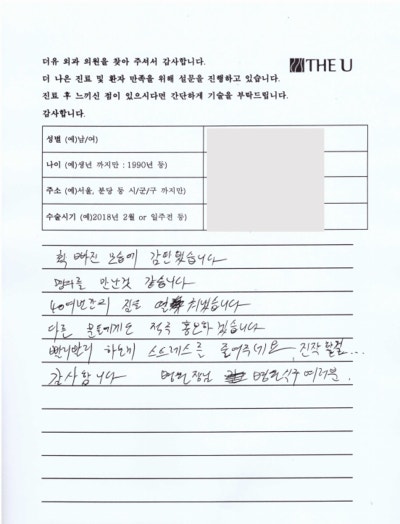 THE U
더유 외과 의원을 찾아 주셔서 감사합니다.
더 나은 진료 및 환자 만족을 위해 설문을 진행하고 있습니다.
진료 후 느끼신 점이 있으시다면 간단하게 기술을 부탁드립니다.
감사합니다.
성별 (예)남/여)
나이 (예)생년 까지만 : 1990년 등)
주소 (예)서울, 분당 등 시/군/구 까지만)
수술시기 (예)2018년 2월 or 일주전 등)
확 빠진 모습에 감인했습니다
만난것 같습니다
40여년간의 짐을 치웠습니다
다른 분들에게도 적극 홍보하겠습니다
빨리빨리 하는게 스트레스를 줄여주네요 진작 할걸...
감사합니다 병원장님 병원식구 여러분.